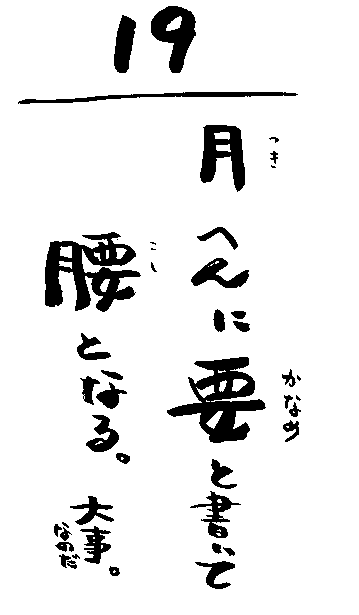 19
月へんに要と書いて
つき
かなめ
腰となる。大事。
こし
なのだ